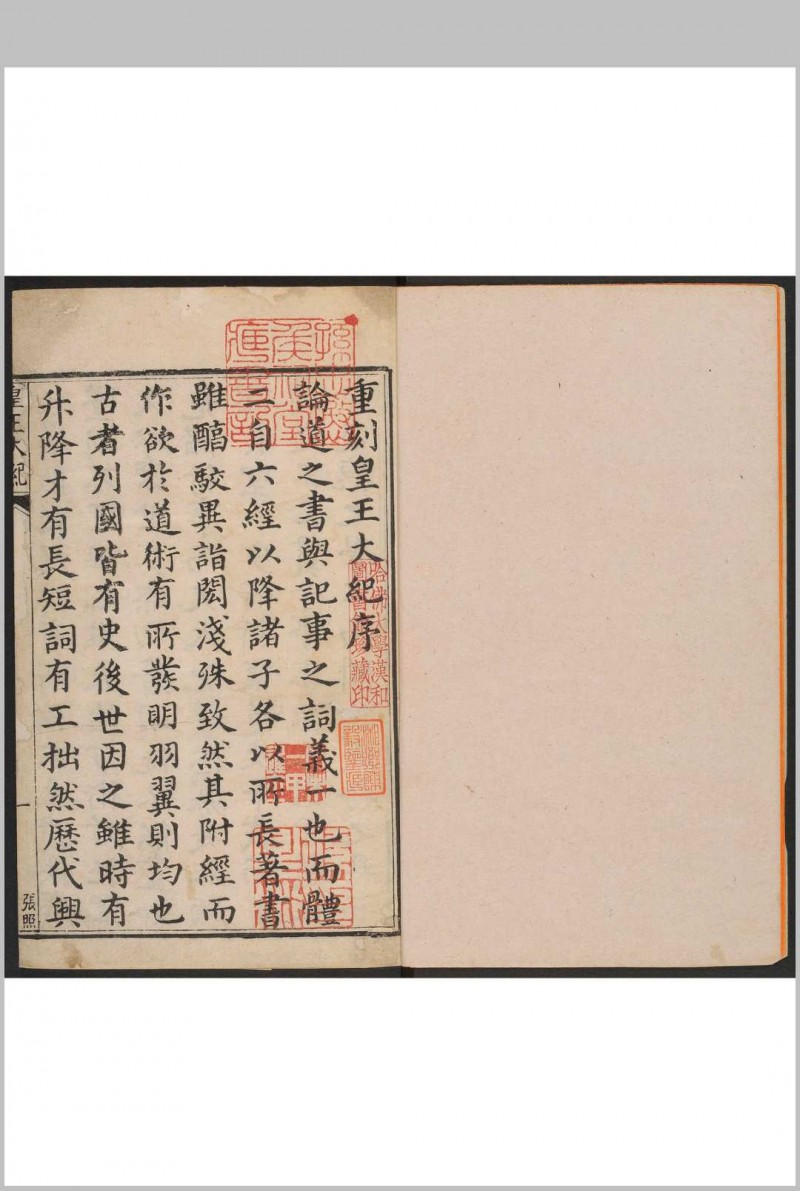 重刻皇王大紀序
論道之書與記事之詞義一也而體
二自六經以降諸子各以所長著書
雖醇駮異詣閎淺殊致然其附經而
作欲於道術有所發明羽翼則均也
古者列國皆有史後世因之雖時有
升降才有長短詞有工拙然歷代興
皇王大紀
一
張照
哈佛大學漢和
圖書館珍藏印